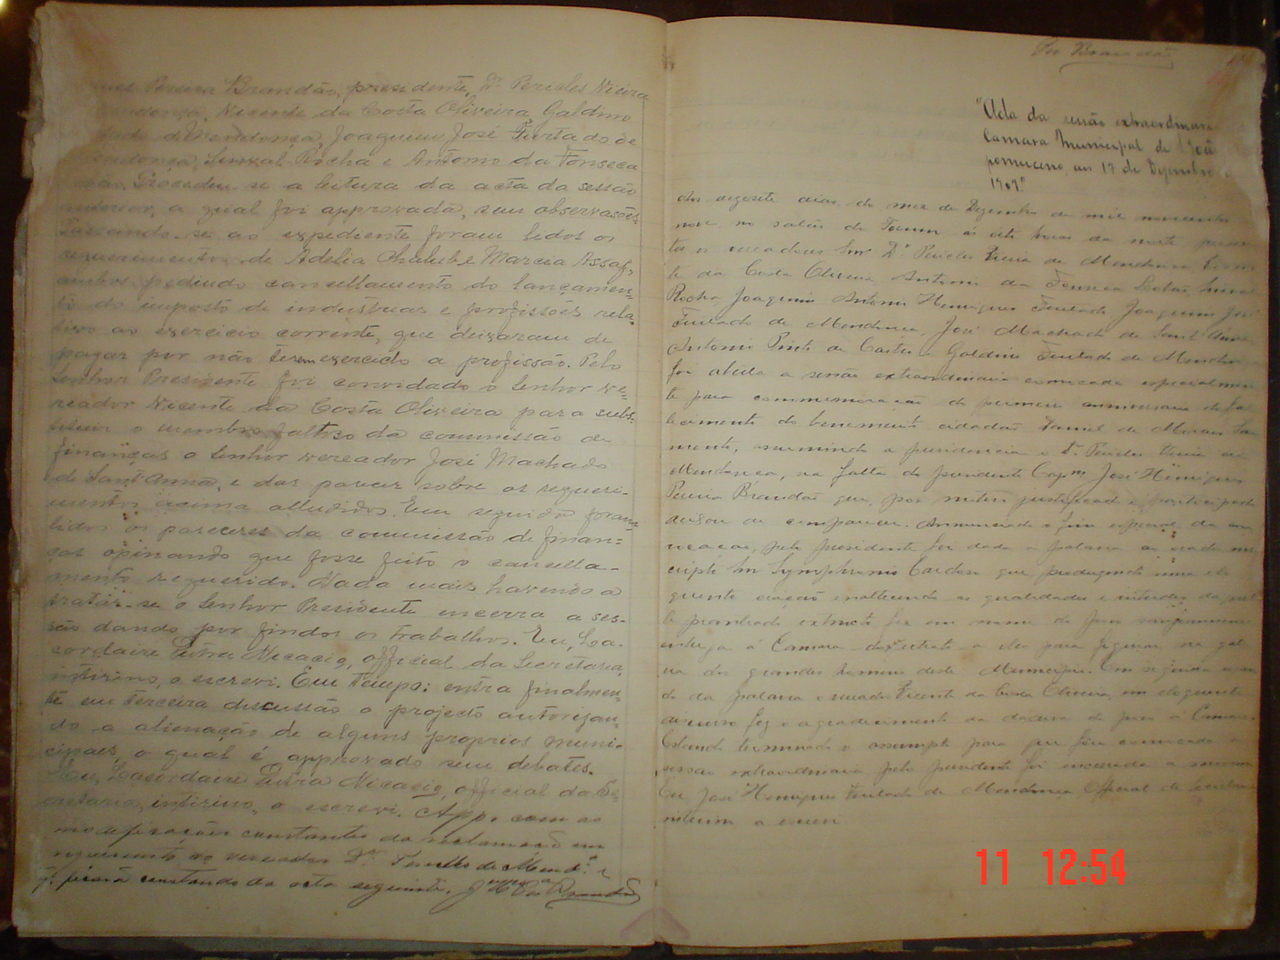 Pereira Brandão, presidente, Dr. Pericles Vieira
Mendonça, Vicente da Costa Oliveira, Galdino
de Mendonça, Joaquim José Furtado de
Mendonça, Sinval Rocha e Antonio da Fonseca
Procedeu-se a leitura da acta da sessão
anterior, a qual foi approvada, sem observasões
Passando-se ao expediente foram lidos os
requerimentos de Adelia Chalub e Marcia Assaf,
ambos pedindo cancellamento do lançamen-
to do imposto de industrias e profissões rela-
tivo ao exercicio corrente, que deixaram de
pagar por não terem exercido a profissão. Pelo
Senhor Presidente foi convidado o Senhor ve-
reador Vicente da Costa Oliveira para subs-
tituir o membro faltoso da commissão de
finanças o Senhor vereador José Machado
de Sant'Anna, e dar parecer sobre os requeri-
mentos acima alludidos. Em seguida foram
lidos os pareceres da commissão de finan-
ças opinando que fosse feito o cancella-
mento requerido. Nada mais havendo a
tratar-se o Senhor Presidente encerra a ses-
são dando por findos os trabalhos. Eu, La-
cordaire Dutra Nicacio, official da Secretaria,
intirino, o escrevi. Em tempo: entra finalmen-
te em terceira discussão o projecto autorizan-
do a alienação de alguns proprios muni-
cipaes, o qual é approvado sem debates.
Eu, Lacordaire Dutra Nicacio, official da Se-
cretaria, intirino, o escrevi. App. com as
modificações constantes da reclamação em
requerimento do vereador Dr. de Mendça
q. ficará constando da acta seguinte.
Brandão
"Acta da sessão extraordinaria
Camara Municipal de S. João
pomuceno, ao 17 de Dezembro
1909"
Aos dezesete dias do mez de Dezembro de mil novecentos
nove, no salão do Forum ás sete horas da noite, presen-
tes os vereadores Snr. Dr. Pericles Vieira de Mendonça Vicen-
te da Costa Oliveira, Antonio da Fonseca Lobão, Sinval
Rocha, Joaquim Antonio Henriques Furtado, Joaquim José
Furtado de Mendonça, José Machado de Sant'Anna,
Antonio Pinto de Castro e Galdino Furtado de Mendonça
foi aberta a sessão extraordinaria convocada especialmen-
te para commemoração do primeiro anniversario do fal-
lecimento do benemerito cidadão Daniel de Moraes Sar-
mento, assumindo a presidencia o Dr. Pericles Vieira de
Mendonça, na falta do presidente Capm José Henriques
Pereira Brandão que, por motivo justificado e participado
deixou de comparecer. Annunciado o fim especial da con-
vocação, pelo presidente foi dada a palavra ao orador ins-
cripto Snr Symphronio Cardoso que, produzindo uma elo-
quente oração enaltecendo as qualidades e virtudes daquel-
le pranteado extincto fez em nome do povo
entrega á Camara do retrato a oleo para figurar na gale-
ria dos grandes homens deste Municipio. Em seguida usan-
do da palavra o vereador Vicente da Costa Oliveira, em eloquente
discurso fez o agradecimento da dadiva do povo á Camara.
Estando terminado o assumpto para que fora convocada a
sessão extraordinaria pelo presidente foi encerrada a mesma.
Eu José Henriques Furtado de Mendonça, Official da Secretaria
interino a escrevi
11 12:54